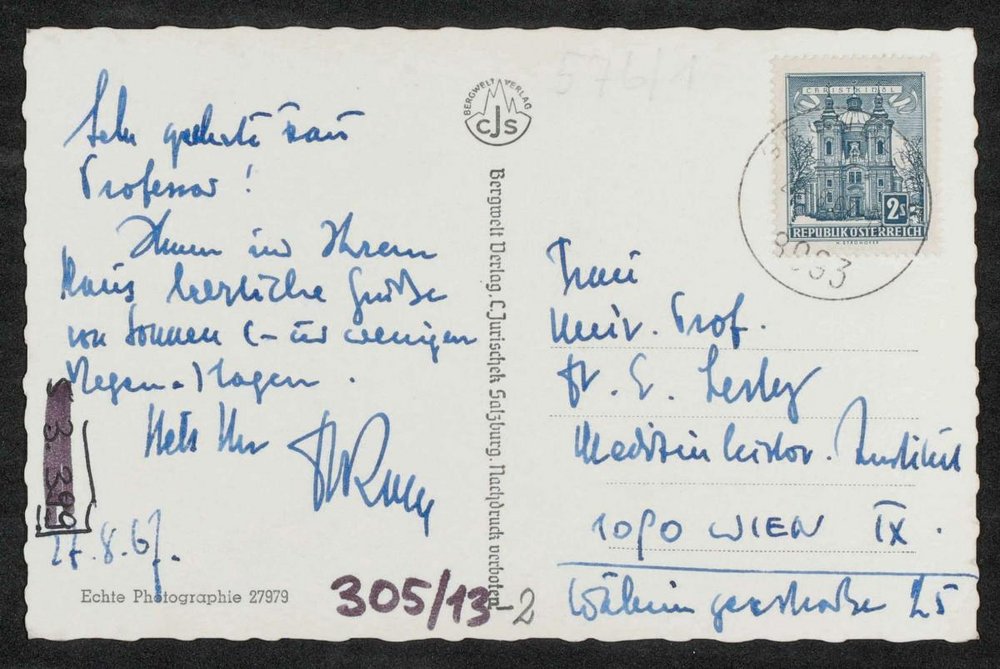 Sehr geehrte Frau
Professor!
Ihnen und Ihrem
Haus herzliche Grüße
von Sonnen (- und wenigen
Regen-)tagen.
Stets Ihr
27.8.67.
Echte Photographie 27979
305/13-2
576/1
BERGWELT VERLAG
CJS
Bergwelt Verlag, C. Jurischek Salzburg. Nachdruck verboten
CHRISTKINDL
2s
REPUBLIK ÖSTERREICH
Frau
Univ. Prof.
Dr. E. Lesky
Medizinhistor. Institut
1090 WIEN IX.
Währingerstraße 25